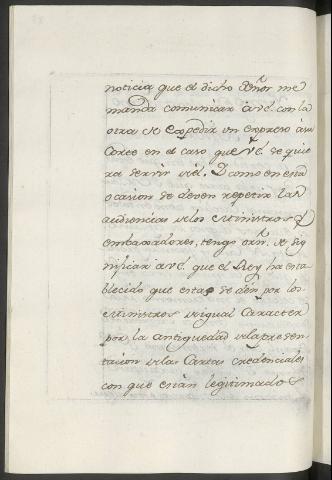 noticia que el dicho Señor me
manda comunicar a v.e. con la
otra de expedir un expreso à su
Corte en el caso que v.e. se quie
ra servir de el. Y como en esta
ocasion se deven repetir las
audiencias de los Ministros y
embaxadores, tengo orn. de sig
nificar a v.e. que el Rey ha esta
blecido que estas se den por los
Ministros de igual Caracter
por la antiguedad de la presen
tacion de las Cartas credenciales
con que están legitimados